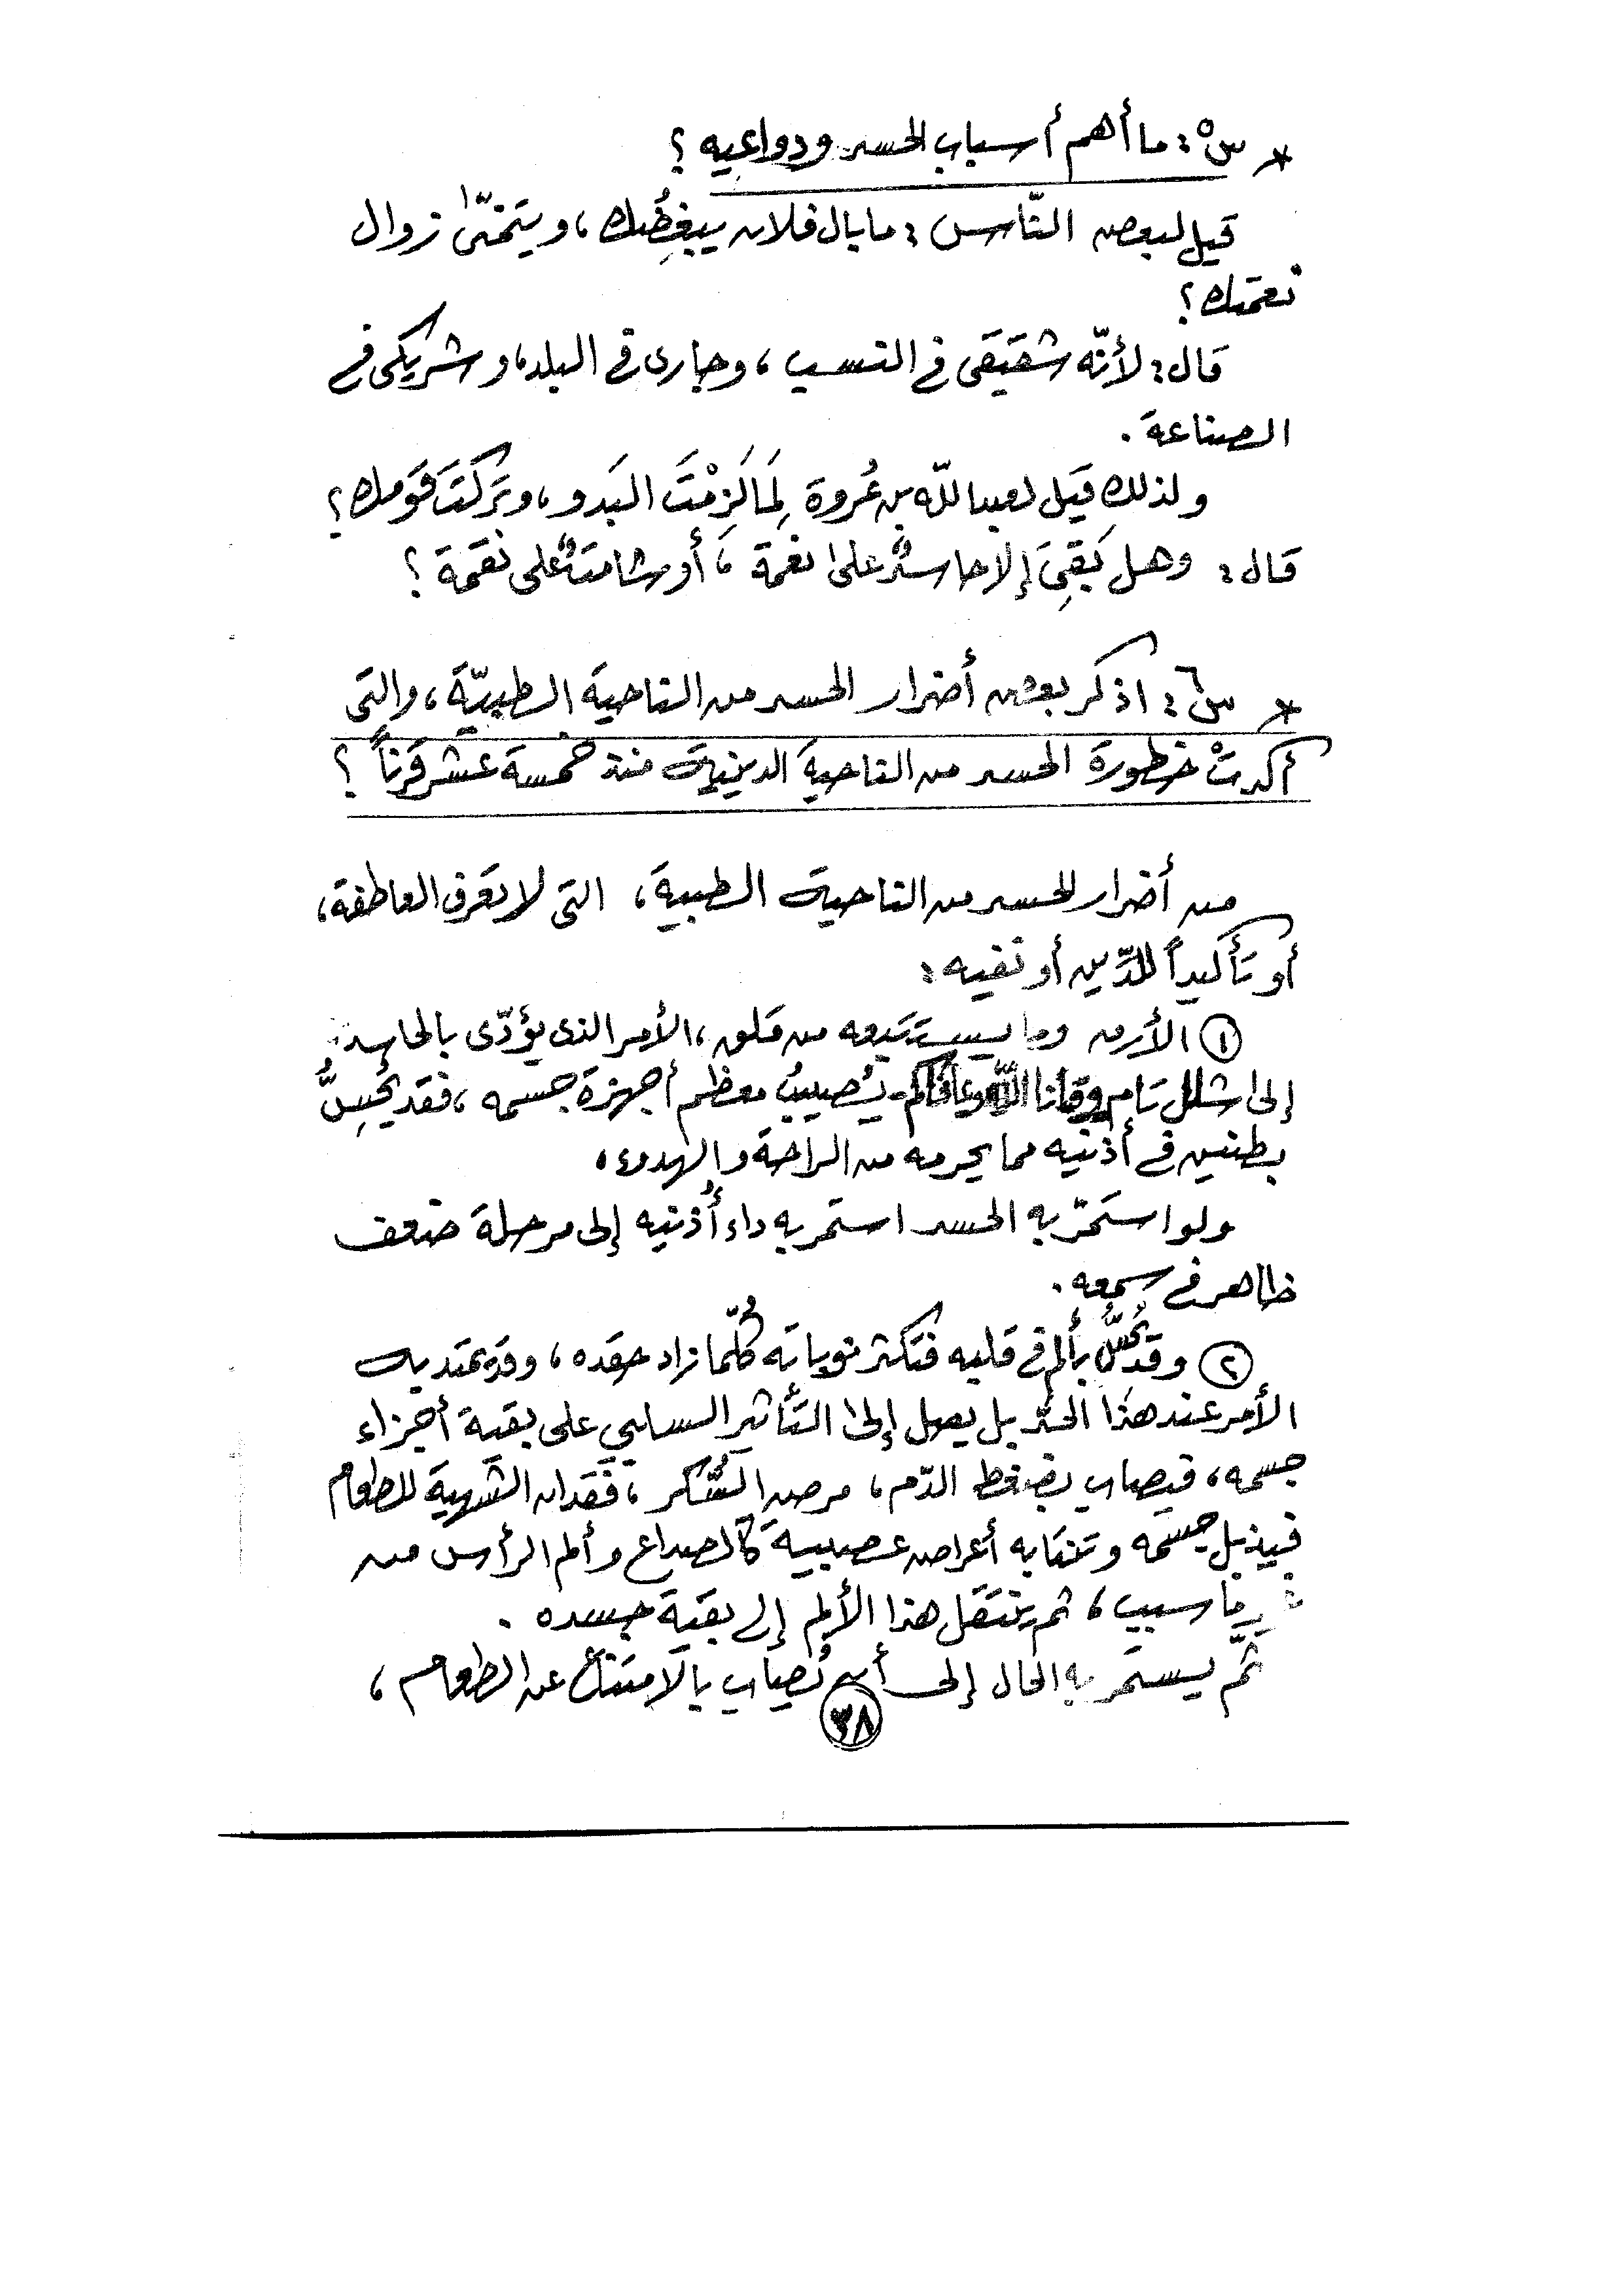 * س٥: ما أهم أسباب الحسد ودواعيه ؟
قيل لبعض النّاس : ما بال فلان يبغِضُك ، ويتمنّى زوال
نعمتك ؟
قال : لأنّه شقيقى فى النسب ، وجارى فى البلد ، وشريكى فى
الصناعة .
ولذلك قيل لعبد اللّه بن عُروة لِمَا لَزِمْتَ البَدو ، وتَركتَ قَومك ؟
قال : وهل بَقِىَ إلا حاسدٌ على نعمة ، أو شامتٌ على نقمة ؟
* س٦ : اذكر بعض أضرار الحسد من الناحية الطبيّة ، والتى
أكدتْ خطورة الحسد من الناحية الدينية منذ خمسة عشر قرناً ؟
من أضرار الحسد من الناحية الطبية ، التى لا تعرف العاطفة ،
أو تأكيداً للدِّين أو نفيه :
١ الأرق وما يسبب تبعه من قلق ، الأمر الذى يؤدّى بالحاسد
إلى شلل تام وقانا اللّه وعافاكم - يُصيبُ معظم أجهزة جسمه ، فقد يُحِسُّ
بطنين فى أذنيه مما يحرمه من الراحة والهدوء ،
ولو استَمرّ به الحسد استمر به داء أُذنيه إلى مرحلة ضعف
ظاهر فى سمعه .
٢ وقد يُحسُّ بألم فى قلبه فتكثر نوباته كُلّما زاد حقده ، وقد يمتد به
الأمر عند هذا الحدّ بل يصل إلى التّأثير السلبي على بقية أجزاء
جسمه ، فيصاب بضغط الدّم ، مرض السُّكر ، فقدان الشّهية للطعام
فيذبل جسمه وتنتابه أعراض عصبية كالصداع وألم الرأس من
ما سبب ، ثم ينتقل هذا الألم إلى بقية جسده .
ثمّ يستمر به الحال إلى أن يُصاب بالامتناع عن الطعام ،
٣٨